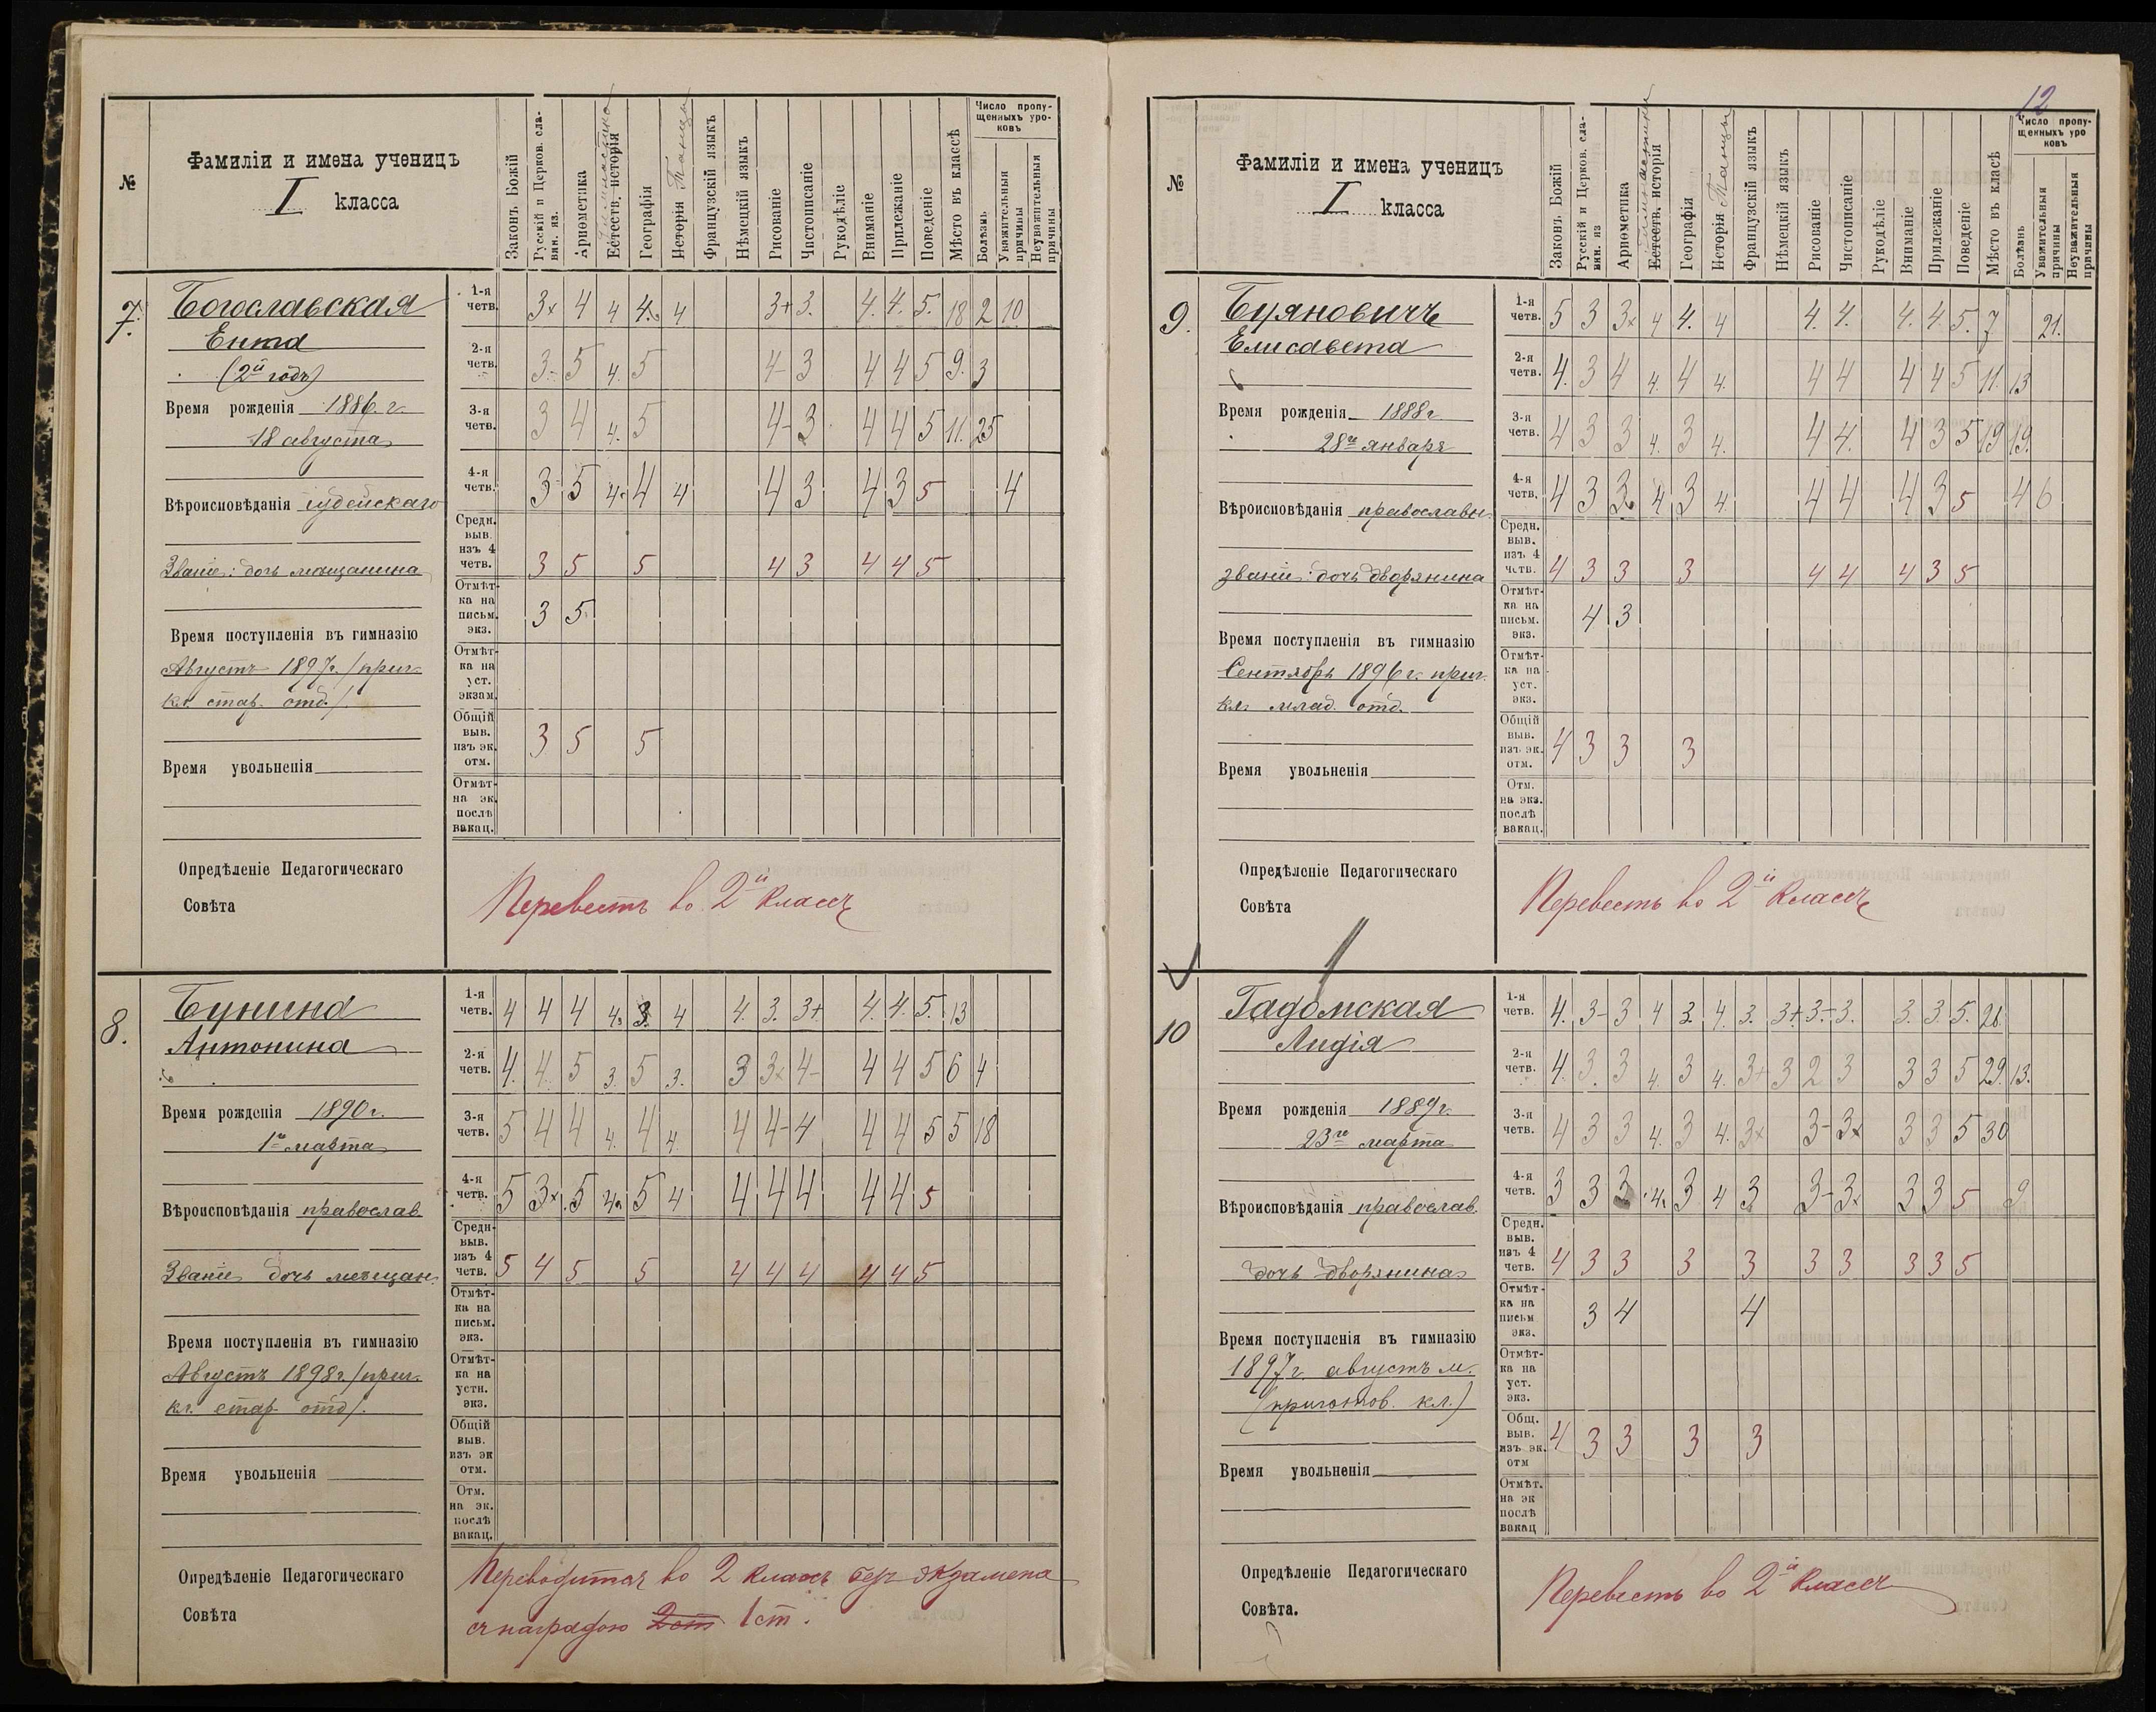 12
№
Фамиліи и имена ученицъ
I класса
Законъ Божій
Русскій и Церков. сла-
вин. яз.
Ариѳметика
Гимнастика
Естеств. исторія
Географія
Исторія Танцы
Французскій языкъ
Нѣмецкій языкъ
Рисованіе
Чистописаніе
Рукодѣліе
Вниманіе
Прилежаніе
Поведеніе
Мѣсто въ классѣ
Число пропу-
щенныхъ уро-
ковъ
Болѣзнь
Уважительныя
причины
Неуважительныя
причины
7.
Богославская
Ента
(2й годъ)
Время рожденія 1886 г.
18 августа
Вѣроисповѣданія іудейскаго
Званіе: дочь мѣщанина
Время поступленія въ гимназію
Августъ 1897 г. /приг.
кл. стар. отд./
Время увольненія
1-я четв. 3× 4 4 4. 4 3+ 3. 4. 4. 5. 18 2 10
2-я четв. 3- 5 4. 5 4- 3 4 4 5 9. 3
3-я четв. 3 4 4. 5 4- 3 4 4 5 11. 25
4-я четв. 3 5 4. 4 4 4 3 4 3 5 4
Средн. выв. изъ 4 четв. 3 5 5 4 3 4 4 5
Отмѣт-ка на письм. экз. 3 5
Отмѣт-ка на уст. экзам.
Общій выв. изъ эк. отм. 3 5 5
Отмѣт-на эк. послѣ вакац.
Опредѣленіе Педагогическаго
Совѣта
Перевести во 2й классъ
8.
Бунина
Антонина
Время рожденія 1890 г.
1го марта
Вѣроисповѣданія православ.
Званіе дочь мѣщан.
Время поступленія въ гимназію
Августъ 1898 г. /приг.
кл. стар. отд/.
Время увольненія
1-я четв. 4 4 4 4. 3. 4 4. 3. 3+ 4. 4. 5. 13
2-я четв. 4. 4. 5 3. 5 3. 3 3× 4- 4 4 5 6 4
3-я четв. 5 4 4 4. 4 4. 4 4- 4 4 4 5 5 18
4-я четв. 5 3× 5 4. 5 4 4 4 4 4 4 5
Средн. выв. изъ 4 четв. 5 4 5 5 4 4 4 4 4 5
Отмѣт-ка на письм. экз.
Отмѣт-ка на устн. экз.
Общій выв. изъ эк отм.
Отм. на эк. послѣ вакац.
Опредѣленіе Педагогическаго
Совѣта
Переводится во 2 классъ безъ экзамена
съ наградою 2 ст 1 ст.
№
Фамиліи и имена ученицъ
I класса
Законъ Божій
Русскій и Церков. сла-
вин. яз
Ариѳметика
Гимнастика
Естеств. исторія
Географія
Исторія Танцы
Французскій языкъ
Нѣмецкій языкъ
Рисованіе
Чистописаніе
Рукодѣліе
Вниманіе
Прилежаніе
Поведеніе
Мѣсто въ классѣ
Число пропу-
щенныхъ уро
ковъ
Болѣзнь
Уважительныя
причины
Неуважительныя
причины
9.
Буяновичъ
Елисавета
Время рожденія 1888 г.
28го января
Вѣроисповѣданія православн.
званіе: дочь дворянина
Время поступленія въ гимназію
Сентябрь 1896 г. приг.
кл. млад. отд.
Время увольненія
1-я четв. 5 3 3× 4 4. 4 4. 4. 4. 4. 5. 7 21.
2-я четв. 4. 3 4 4. 4 4. 4 4 4 4 5 11. 13
3-я четв. 4 3 3 4. 3 4. 4 4. 4 3 5 19 19.
4-я четв. 4 3 3 4 3 4. 4 4 4 3 5 4 6
Средн. выв. изъ 4 четв. 4 3 3 3 4 4 4 3 5
Отмѣт-ка на письм. экз. 4 3
Отмѣт-ка на уст. экз.
Общій выв. изъ эк. отм. 4 3 3 3
Отм. на экз. послѣ вакац.
Опредѣленіе Педагогическаго
Совѣта
Перевесть во 2й классъ
10
Гадомская
Лидія
Время рожденія 1889 г.
23го марта
Вѣроисповѣданія православ.
дочь дворянина
Время поступленія въ гимназію
1897 г. августъ м.
(приготов. кл.)
Время увольненія
1-я четв. 4. 3- 3 4 3. 4. 3. 3+ 3- 3. 3. 3. 5. 28.
2-я четв. 4. 3. 3 4. 3 4. 3+ 3 2 3 3 3 5 29. 13.
3-я четв. 4 3 3 4. 3 4. 3× 3- 3× 3 3 5 30
4-я четв. 3 3 3 4. 3 4 3 3- 3× 3 3 5 9
Средн. выв. изъ 4 четв. 4 3 3 3 3 3 3 3 3 5
Отмѣт-ка на письм экз. 3 4 4
Отмѣт-ка на уст. экз.
Общ. выв. изъ эк. отм 4 3 3 3 3
Отмѣт. на эк послѣ вакац
Опредѣленіе Педагогическаго
Совѣта.
Перевесть во 2й классъ